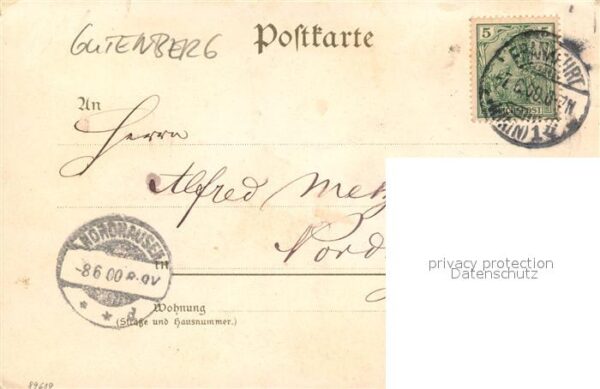 GUTENBERG
Postkarte
5
FRANKFURT
(MAIN) 1
An
Herrn
Alfred Metz
Nord
NORDHAUSEN
-8 6 00
in
Wohnung
(Straße und Hausnummer.)
privacy protection
Datenschutz